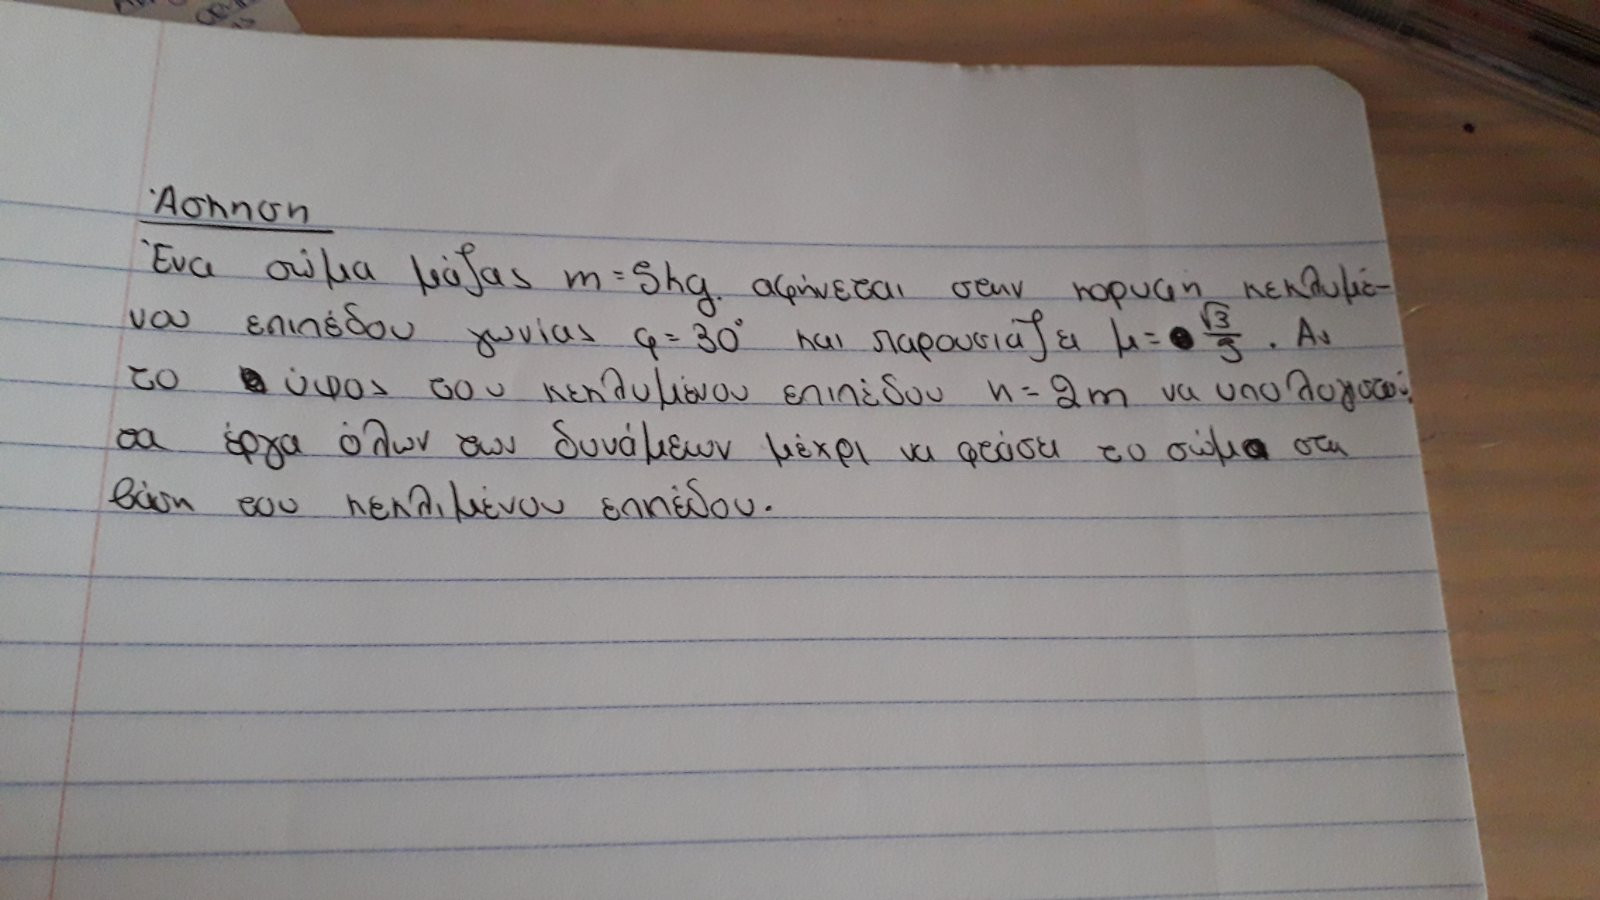 Άσκηση
Ένα σώμα μάζας m = 5kg. αφήνεται στην κορυφή κεκλυμέ-
νου επιπέδου γωνίας φ = 30° και παρουσιάζει μ = √3/5 . Αν
το ύψος του κεκλυμένου επιπέδου h = 2m να υπολογιστούν
τα έργα όλων των δυνάμεων μέχρι να φτάσει το σώμα στη
βάση του κεκλιμένου επιπέδου.